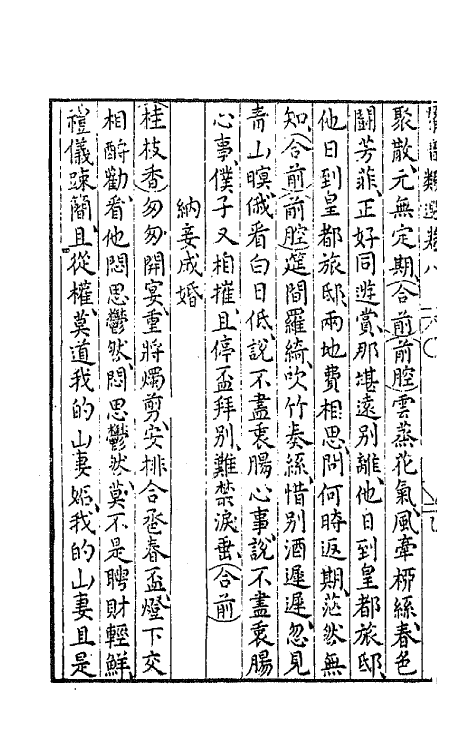 聚散、元無定期、合前前腔雲蒸花氣、風牽栁絲、春色
鬪芳菲、正好同遊賞、那堪遠别離、他日到皇都旅邸、
他日到皇都旅邸、兩地費相思、問何時返期、茫然無
知、合前前腔筵間羅綺、吹竹奏絲、惜别酒遲遲、忽見
青山暝、俄看白日低、説不盡衷腸心事、説不盡衷腸
心事、僕子又相摧、且停盃拜别、難禁淚垂、合前
納妾成婚
桂枝香匆匆開宴、重將燭剪、安排合卺春盃、燈下交
相酧勸、看他悶思鬱然、悶思鬱然、莫不是聘財輕鮮、
禮儀踈簡、且從權、莫道我的山妻妬、我的山妻且是